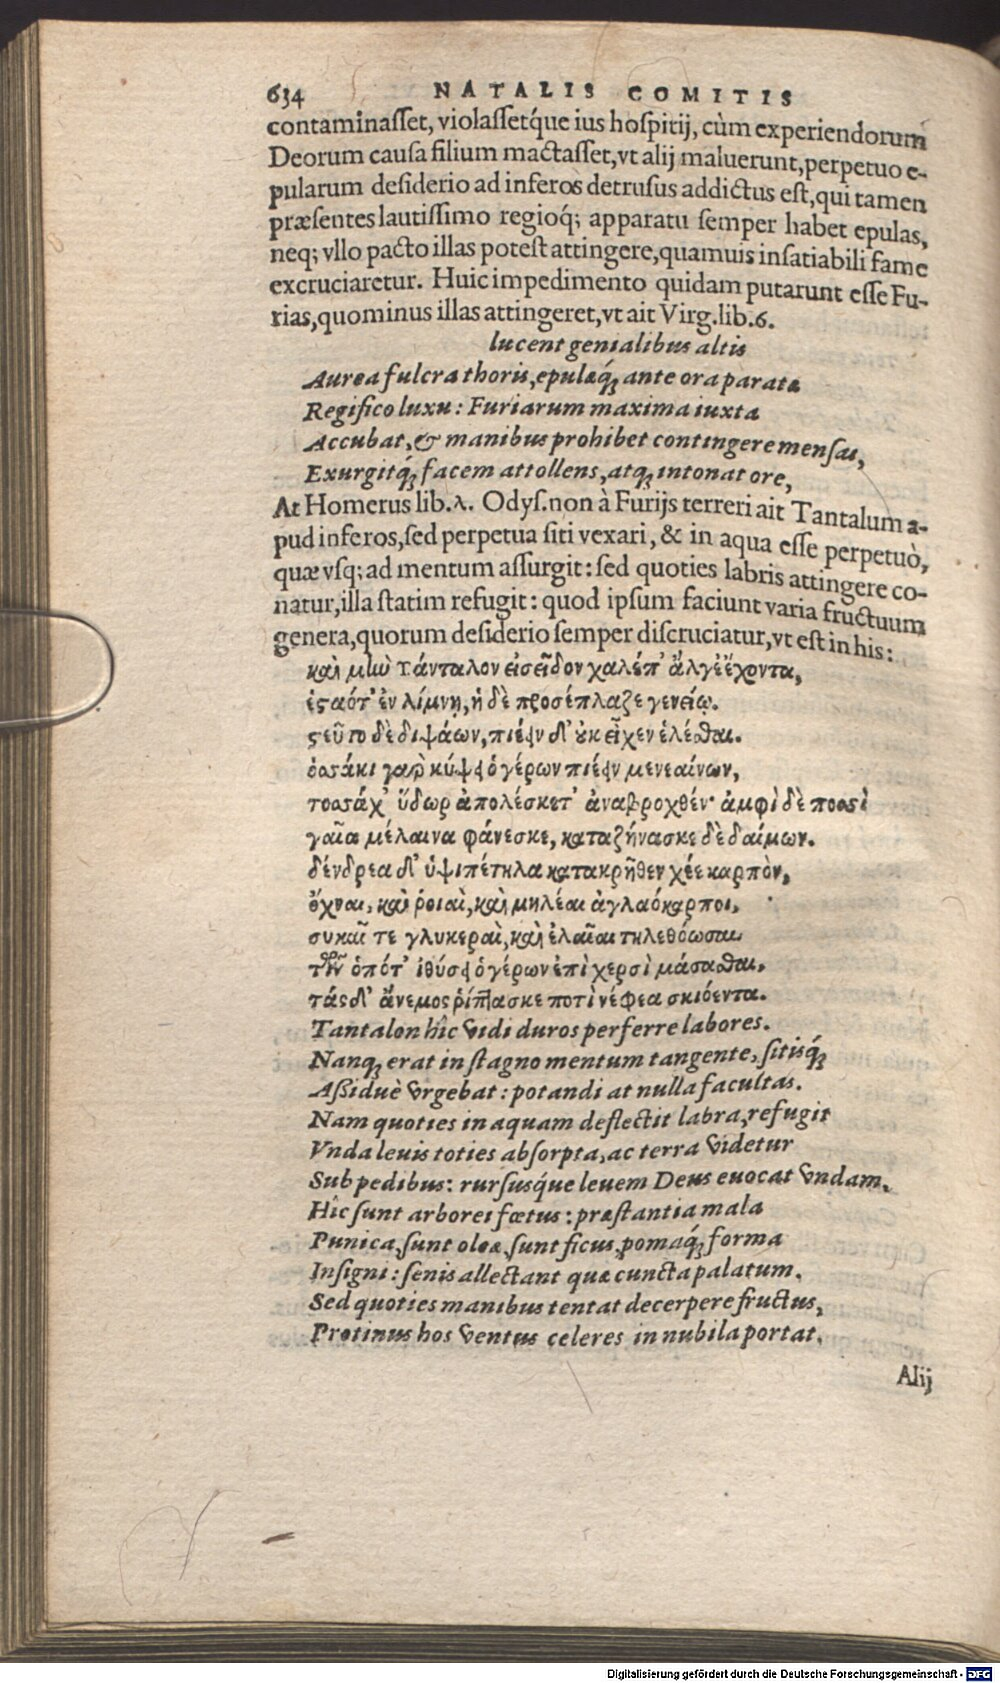 634 NATALIS COMITIS
contaminaſſet, violaſſetq́ue ius hoſpitij, cùm experiendorum
Deorum cauſa filium mactaſſet, vt alij maluerunt, perpetuo e-
pularum deſiderio ad inferos detruſus addictus eſt, qui tamen
præſentes lautiſſimo regioq́; apparatu ſemper habet epulas,
neq; vllo pacto illas poteſt attingere, quamuis inſatiabili fame
excruciaretur. Huic impedimento quidam putarunt eſſe Fu-
rias, quominus illas attingeret, vt ait Virg. lib. 6.
lucent genialibus altis
Aurea fulcra thoris, epulæq́; ante ora paratæ
Regifico luxu: Furiarum maxima iuxta
Accubat, & manibus prohibet contingere menſas,
Exurgitq́; facem attollens, atq; intonat ore,
At Homerus lib. λ. Odyſ. non à Furijs terreri ait Tantalum a-
pud inferos, ſed perpetua ſiti vexari, & in aqua eſſe perpetuò,
quæ vſq; ad mentum aſſurgit: ſed quoties labris attingere co-
natur, illa ſtatim refugit: quod ipſum faciunt varia fructuum
genera, quorum deſiderio ſemper diſcruciatur, vt eſt in his:
καὶ μὼ τάνταλον εἰσεῖδον χαλέπ' ἄλγε ἔχοντα,
ἑςαότ' ἐν λίμνῃ, ἡ δὲ προσέπλαζε γενείῳ.
ςεῦτο δὲ διψάων, πιέειν δ' οὐκ εἶχεν ἑλέσθαι.
ὁσσάκι γὰρ κύψει ὁ γέρων πιέειν μενεαίνων,
τοσσάχ' ὕδωρ ἀπολέσκετ' ἀναβροχθέν· ἀμφὶ δὲ ποσσὶ
γαῖα μέλαινα φάνεσκε, καταζήνασκε δὲ δαίμων.
δένδρεα δ' ὑψιπέτηλα κατακρῆθεν χέε καρπὸν,
ὄχναι, καὶ ῥοιαὶ, καὶ μηλέαι ἀγλαόκαρποι,
συκαῖ τε γλυκεραὶ, καὶ ἐλαῖαι τηλεθόωσαι
τῶν ὁπότ' ἰθύσει ὁ γέρων ἐπὶ χερσὶ μάσασθαι,
τάς δ' ἄνεμος ῥίπτασκε ποτὶ νέφεα σκιόεντα.
Tantalon hîc vidi duros perferre labores.
Nanq; erat in ſtagno mentum tangente, ſitisq́;
Aßiduè vrgebat: potandi at nulla facultas.
Nam quoties in aquam deflectit labra, refugit
Vnda leuis toties abſorpta, ac terra videtur
Sub pedibus: rurſusq́ue leuem Deus euocat vndam.
Hîc ſunt arborei fœtus: præſtantia mala
Punica, ſunt oleæ, ſunt ficus, pomaq́; forma
Inſigni: ſenis allectant quæ cuncta palatum.
Sed quoties manibus tentat decerpere fructus,
Protinus hos ventus celeres in nubila portat.
Alij
Digitalisierung gefördert durch die Deutsche Forschungsgemeinschaft - DFG